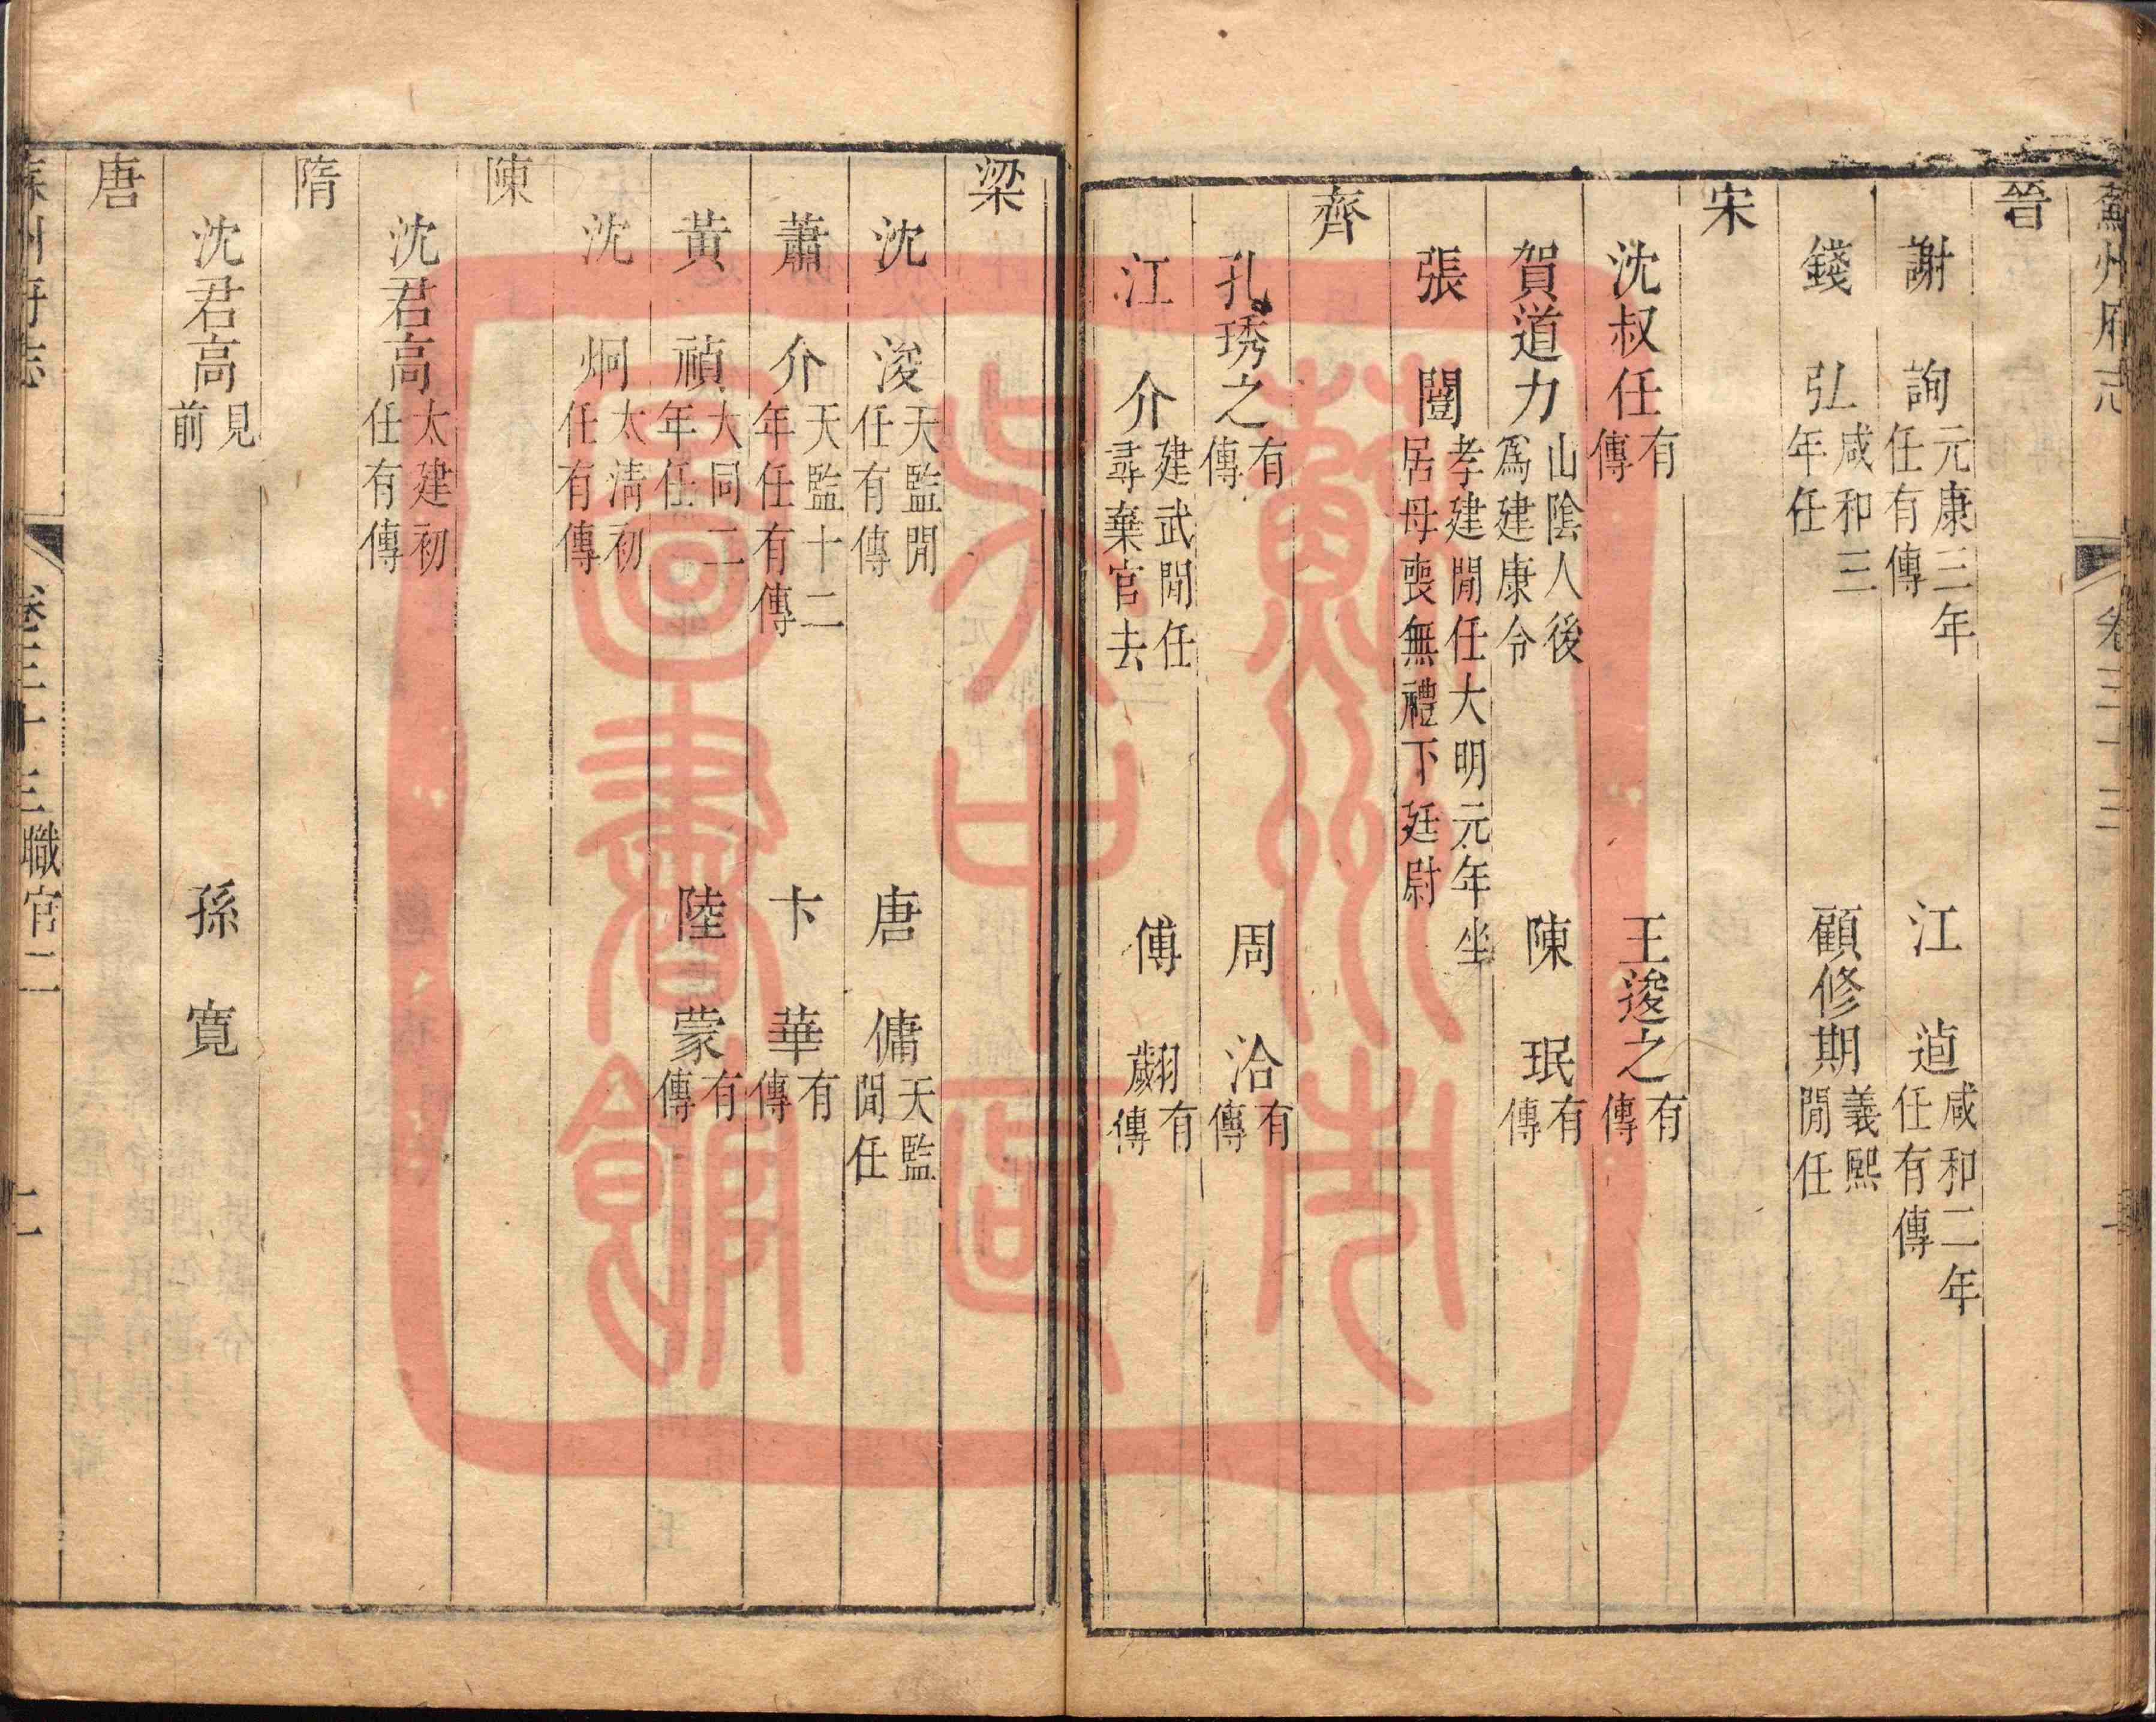 蘇州府志 卷三十三
晉
謝詢元康三年任有傳 江逌咸和二年任有傳
錢弘咸和三年任 顧修期義熙閒任
宋
沈叔任有傳 王逡之有傳
賀道力山陰人後爲建康令 陳珉有傳
張闓孝建閒任大明元年坐居母喪無禮下廷尉
齊
孔琇之有傳 周洽有傳
江介建武閒任尋棄官去 傅翽有傳
梁
沈浚天監閒任有傳 唐傭天監閒任
蕭介天監十二年任有傳 卞華有傳
黃禎大同二年任 陸蒙有傳
沈炯太淸初任有傳
陳
沈君高太建初任有傳
隋
沈君高見前 孫寬
唐
蘇州府志 卷三十三 職官二 二
蘇州市
吳中區
圖書館